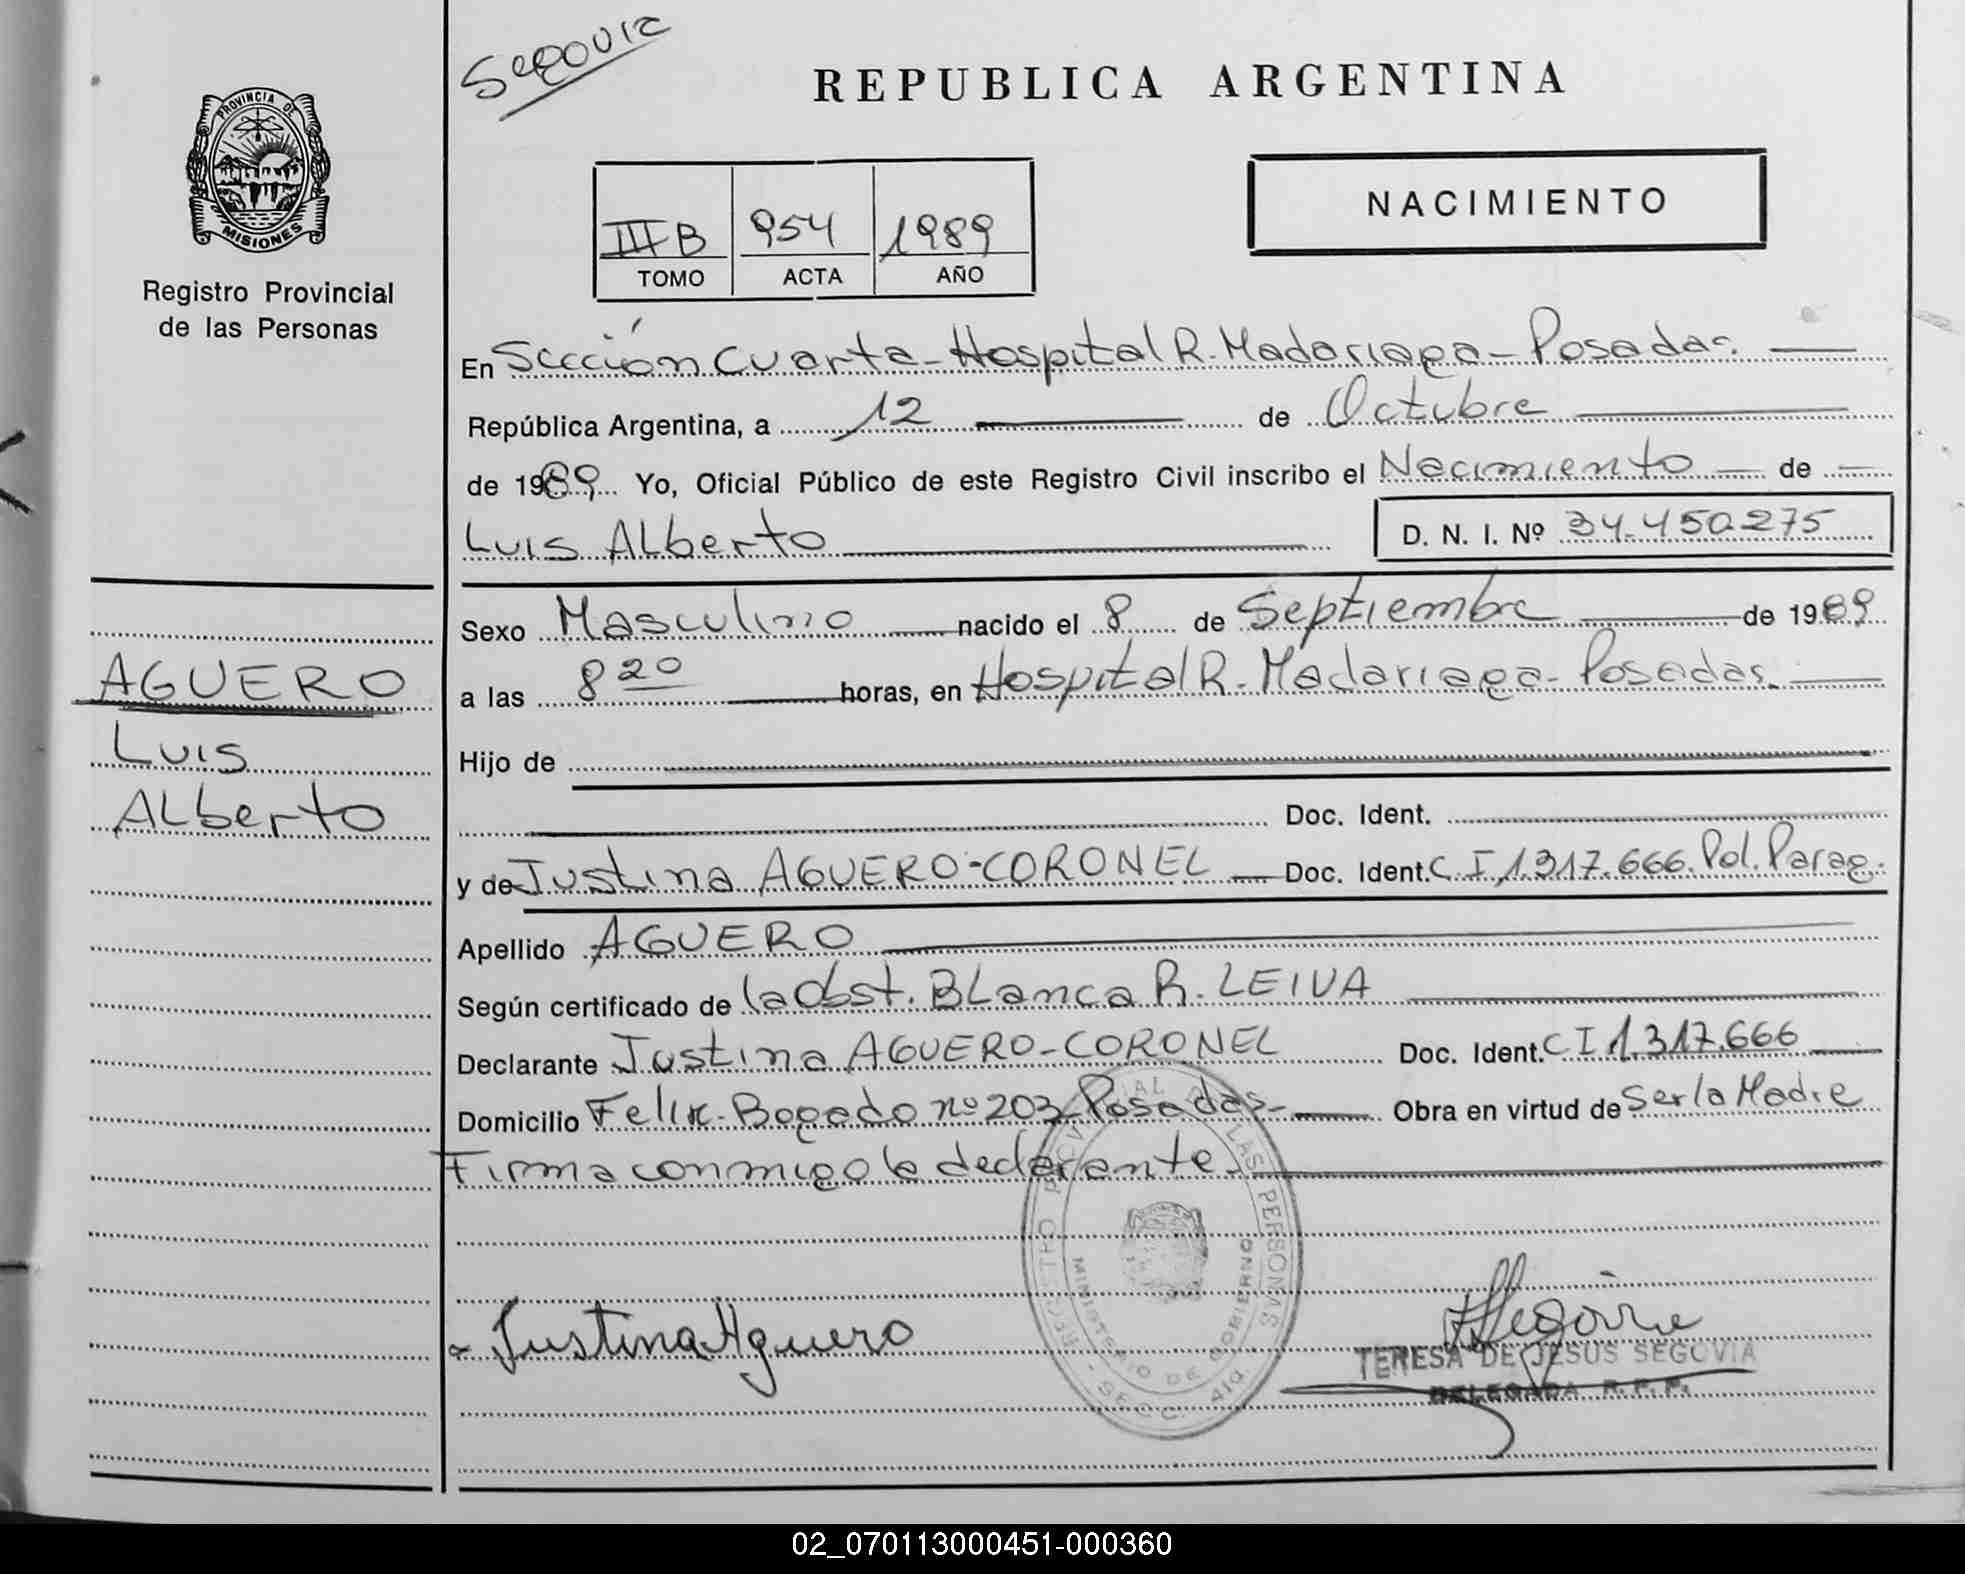 Segovia
REPUBLICA ARGENTINA
PROVINCIA DE
MISIONES
Registro Provincial
de las Personas
NACIMIENTO
III B 954 1989
TOMO ACTA AÑO
En Sección Cuarta - Hospital R. Madariaga - Posadas.
República Argentina, a 12 de Octubre
de 1989 Yo, Oficial Público de este Registro Civil inscribo el Nacimiento de
Luis Alberto D. N. I. Nº 34.450.275
Sexo Masculino nacido el 8 de Septiembre de 1989
a las 8 20 horas, en Hospital R. Madariaga - Posadas.
Hijo de
Doc. Ident.
y de Justina AGUERO-CORONEL Doc. Ident. C.I 1.317.666. Pol. Parag.
Apellido AGUERO
Según certificado de la Obst. Blanca R. LEIVA
Declarante Justina AGUERO-CORONEL Doc. Ident. C I 1.317.666
Domicilio Felix Bogado nº 203 Posadas Obra en virtud de Ser la Madre
Firma conmigo la declarante.
AGUERO
Luis
Alberto
Justina Aguero
REGISTRO PROVINCIAL DE LAS PERSONAS
MINISTERIO DE GOBIERNO
- SECC. 4ta. -
TERESA DE JESUS SEGOVIA
DELEGADA R. P. P.
02_070113000451-000360